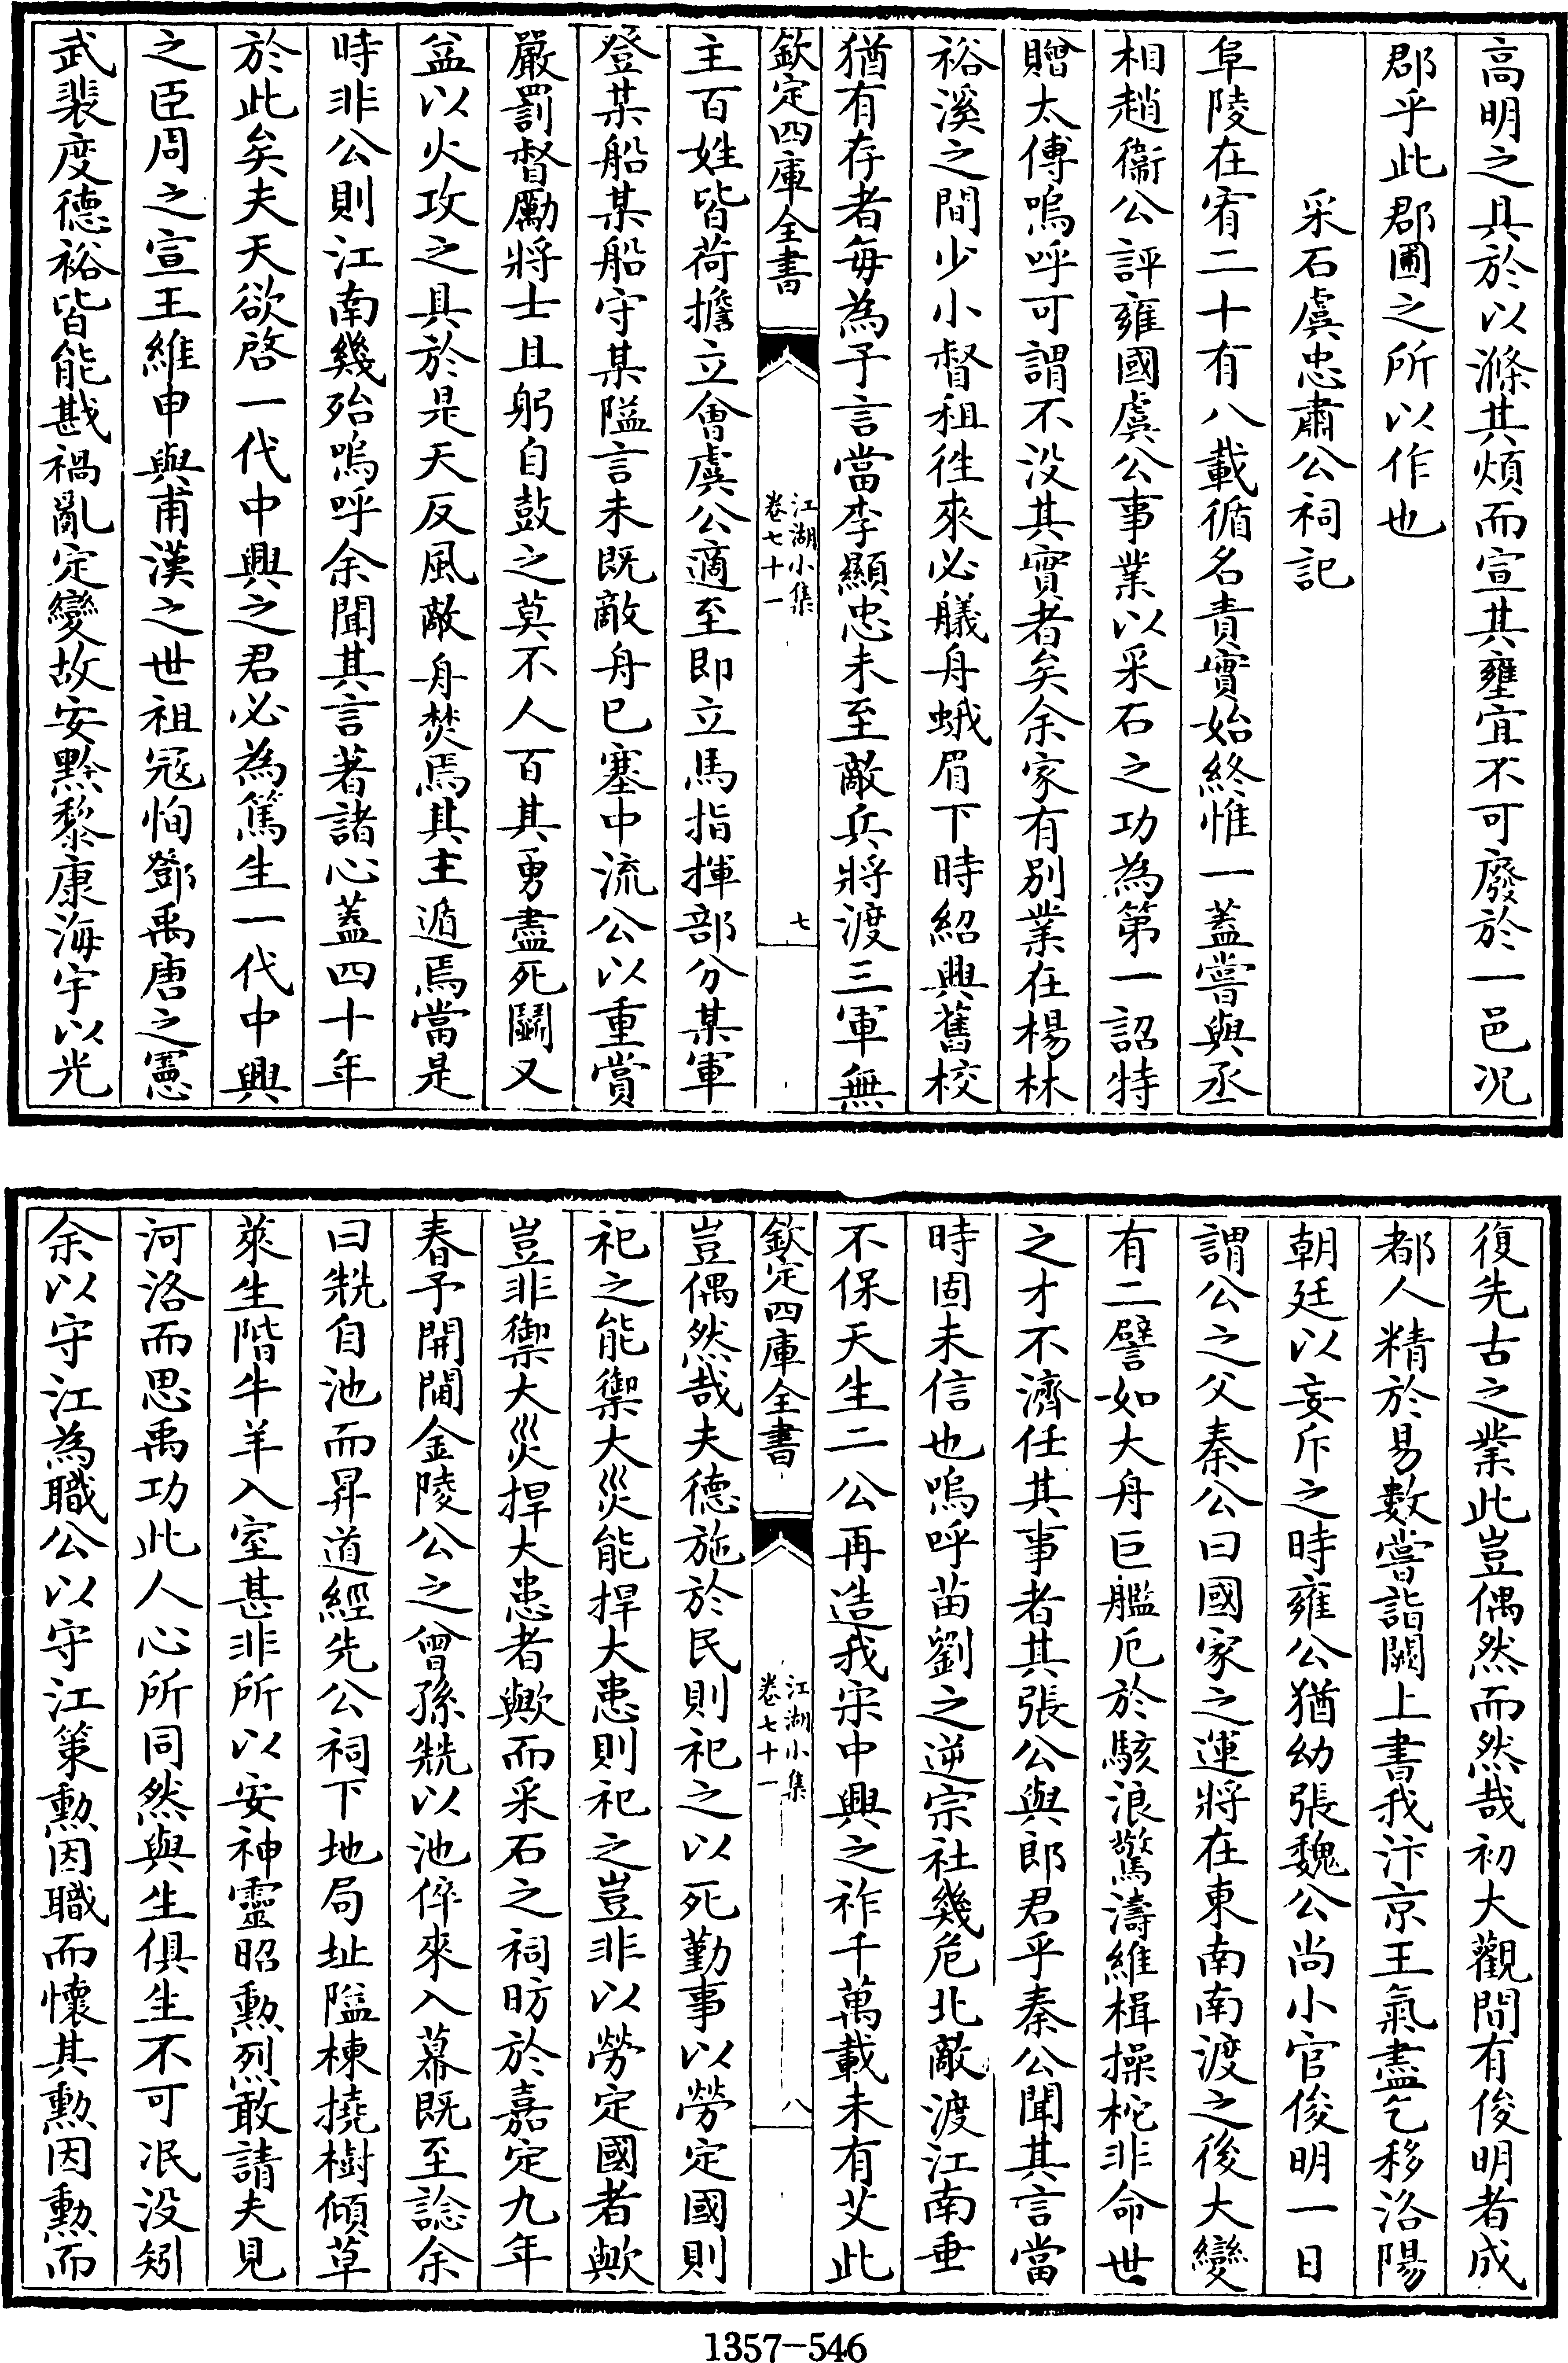 高明之具於以滌其煩而宣其壅宜不可廢於一邑况
郡乎此郡圃之所以作也
采石虞忠肅公祠記
阜陵在宥二十有八載循名責實始終惟一蓋嘗與丞
相趙衞公評雍國虞公事業以采石之功為第一詔特
贈太傅嗚呼可謂不没其實者矣余家有别業在楊林
裕溪之間少小督租徃來必艤舟蛾眉下時紹興舊校
猶有存者毎為予言當李顯忠未至敵兵將渡三軍無
欽定四庫全書
江湖小集
卷七十一
七
主百姓皆荷擔立會虞公適至即立馬指揮部分某軍
登某船某船守某隘言未既敵舟已塞中流公以重賞
嚴罰督勵將士且躬自鼓之莫不人百其勇盡死鬭又
盆以火攻之具於是天反風敵舟焚焉其主遁焉當是
時非公則江南幾殆嗚呼余聞其言著諸心蓋四十年
於此矣夫天欲啓一代中興之君必為篤生一代中興
之臣周之宣王維申與甫漢之世祖冦恂鄧禹唐之憲
武裴度德裕皆能戡禍亂定變故安黔黎康海宇以光
復先古之業此豈偶然而然哉初大觀間有俊明者成
都人精於易數嘗詣闕上書我汴京王氣盡乞移洛陽
朝廷以妄斥之時雍公猶幼張魏公尚小官俊明一日
謂公之父秦公曰國家之運將在東南南渡之後大變
有二譬如大舟巨艦厄於駭浪驚濤維楫操柁非命世
之才不濟任其事者其張公與郎君乎秦公聞其言當
時固未信也嗚呼苗劉之逆宗社幾危北敵渡江南垂
不保天生二公再造我宋中興之祚千萬載未有艾此
欽定四庫全書
江湖小集
卷七十一
八
豈偶然哉夫德施於民則祀之以死勤事以勞定國則
祀之能禦大災能捍大患則祀之豈非以勞定國者歟
豈非禦大災捍大患者歟而采石之祠昉於嘉定九年
春予開閫金陵公之曾孫兟以池倅來入幕既至諗余
曰兟自池而昇道經先公祠下地局址隘棟撓樹傾草
萊生階牛羊入室甚非所以安神靈昭勲烈敢請夫見
河洛而思禹功此人心所同然與生俱生不可泯没矧
余以守江為職公以守江策勲因職而懷其勲因勲而
1357-546